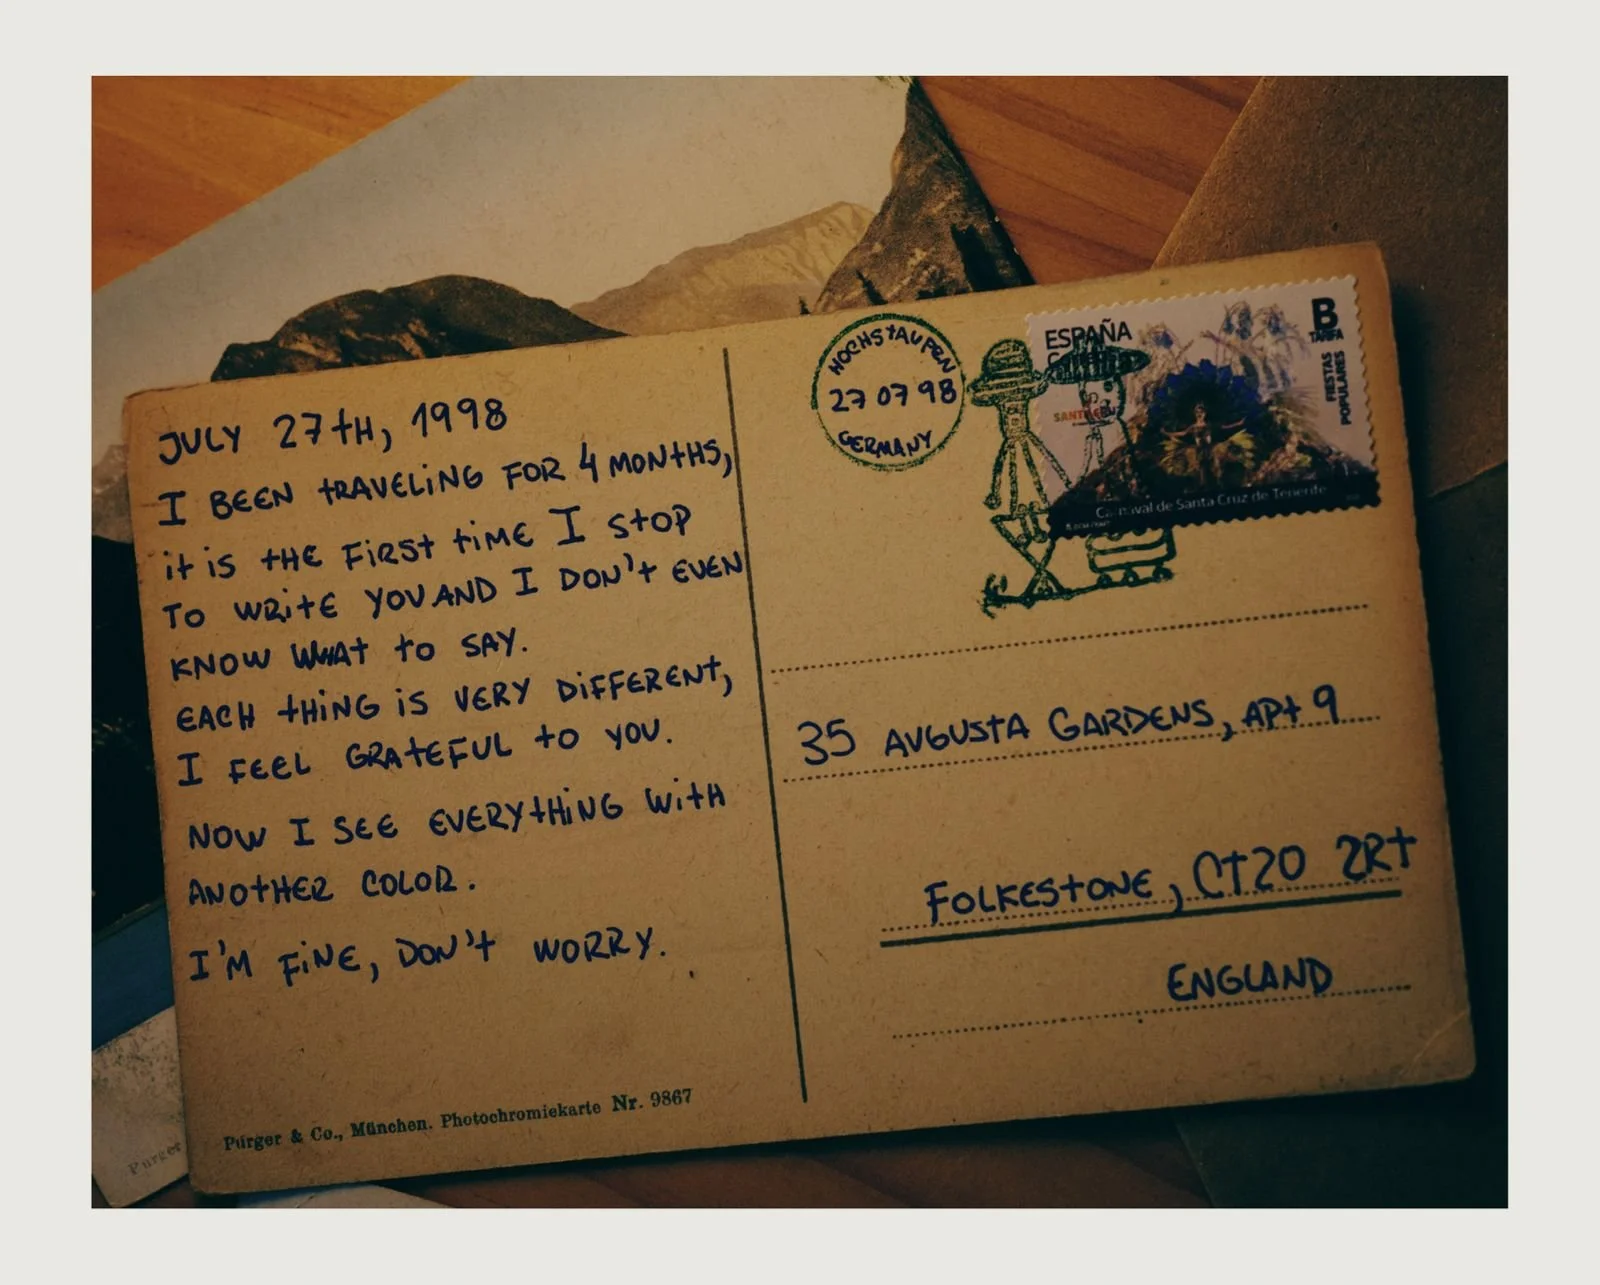 JULY 27TH, 1998
I BEEN TRAVELING FOR 4 MONTHS,
IT IS THE FIRST TIME I STOP
TO WRITE YOU AND I DON'T EVEN
KNOW WHAT TO SAY.
EACH THING IS VERY DIFFERENT,
I FEEL GRATEFUL TO YOU.
NOW I SEE EVERYTHING WITH
ANOTHER COLOR.
I'M FINE, DON'T WORRY.
Purger & Co., München. Photochromiekarte Nr. 9867
Purger
HOCHSTAUFEN
27 07 98
GERMANY
ESPAÑA
B
TARIFA
FIESTAS
POPULARES
Carnaval de Santa Cruz de Tenerife
35 AUGUSTA GARDENS, APT 9
FOLKESTONE, CT20 2RT
ENGLAND